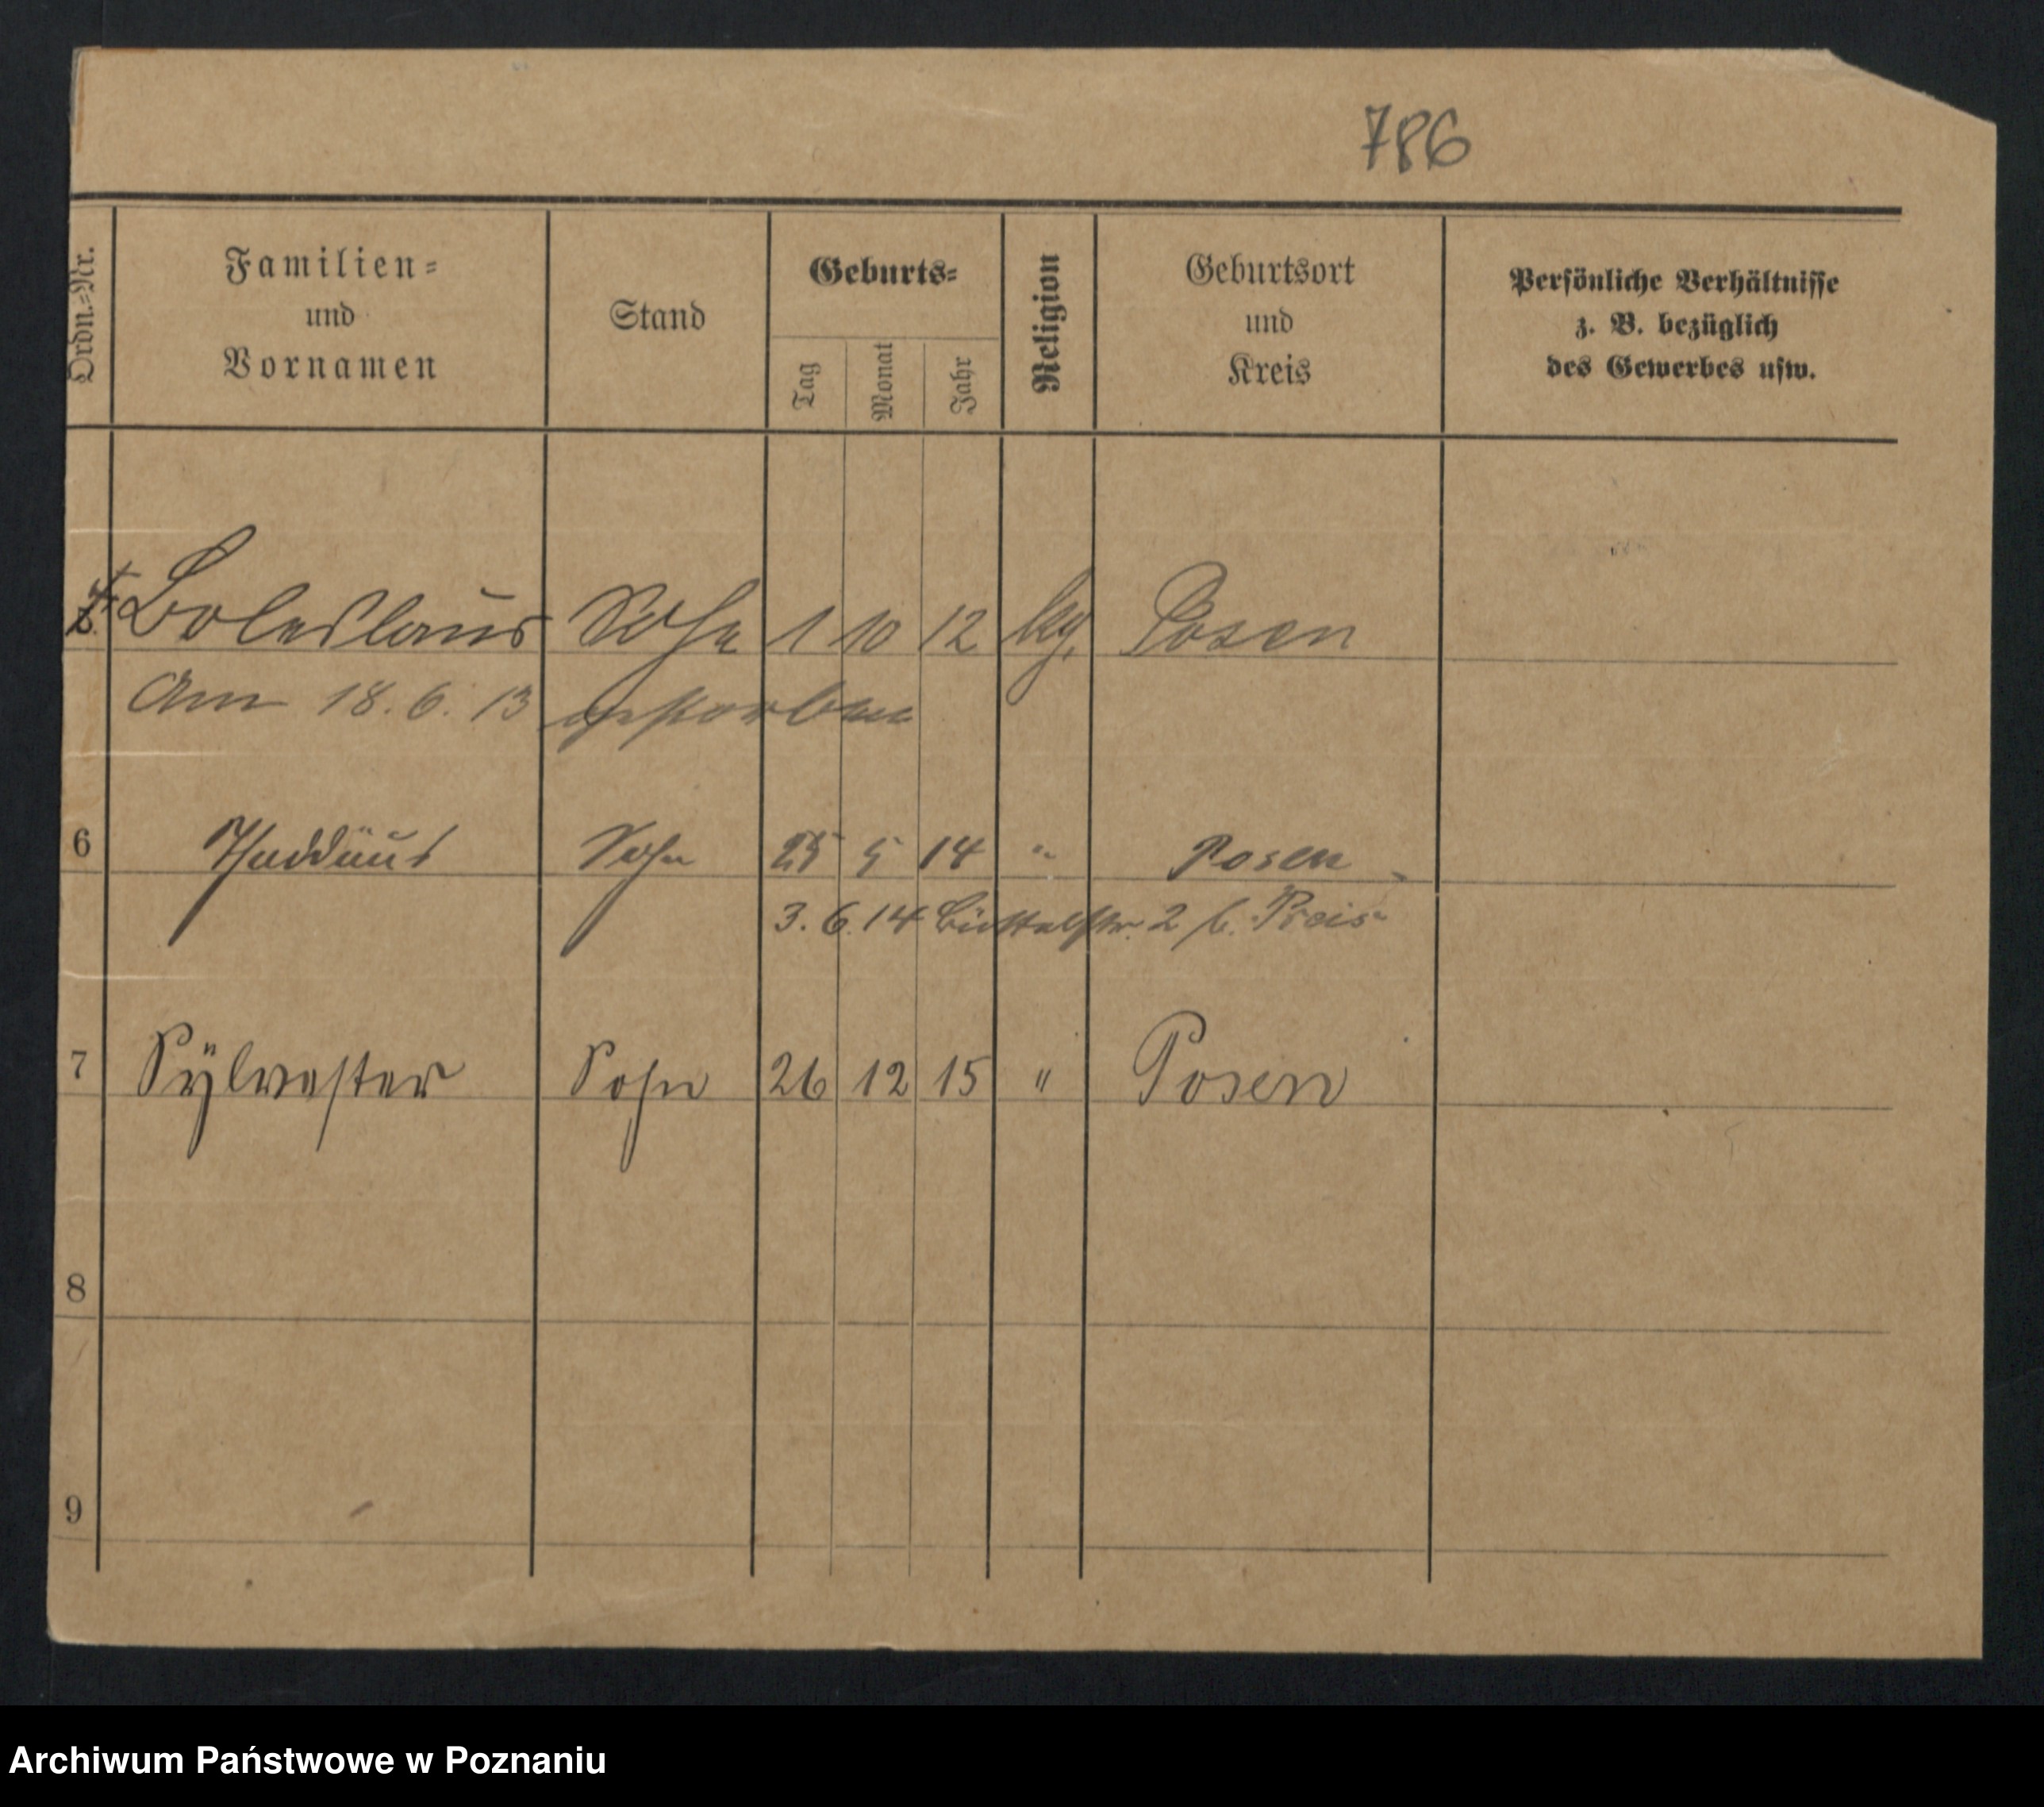 786
Ordn.=Nr.
Familien=
und
Vornamen
Stand
Geburts=
Tag
Monat
Jahr
Religion
Geburtsort
und
Kreis
Persönliche Verhältnisse
z. B. bezüglich
des Gewerbes usw.
Boleslaus Sohn 1 10 12 kg. Posen
Am 18. 6. 13 gestorben
6 Thaddäus Sohn 25 5 14 " Posen
3. 6. 14 Büttelstr. 2 b. Preis
7 Sÿlvester Sohn 26 12 15 " Posen
8
9
Archiwum Państwowe w Poznaniu